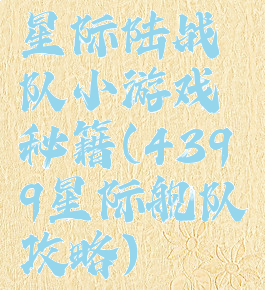 星际陆战
队小游戏
秘籍(439
9星际舰队
攻略)